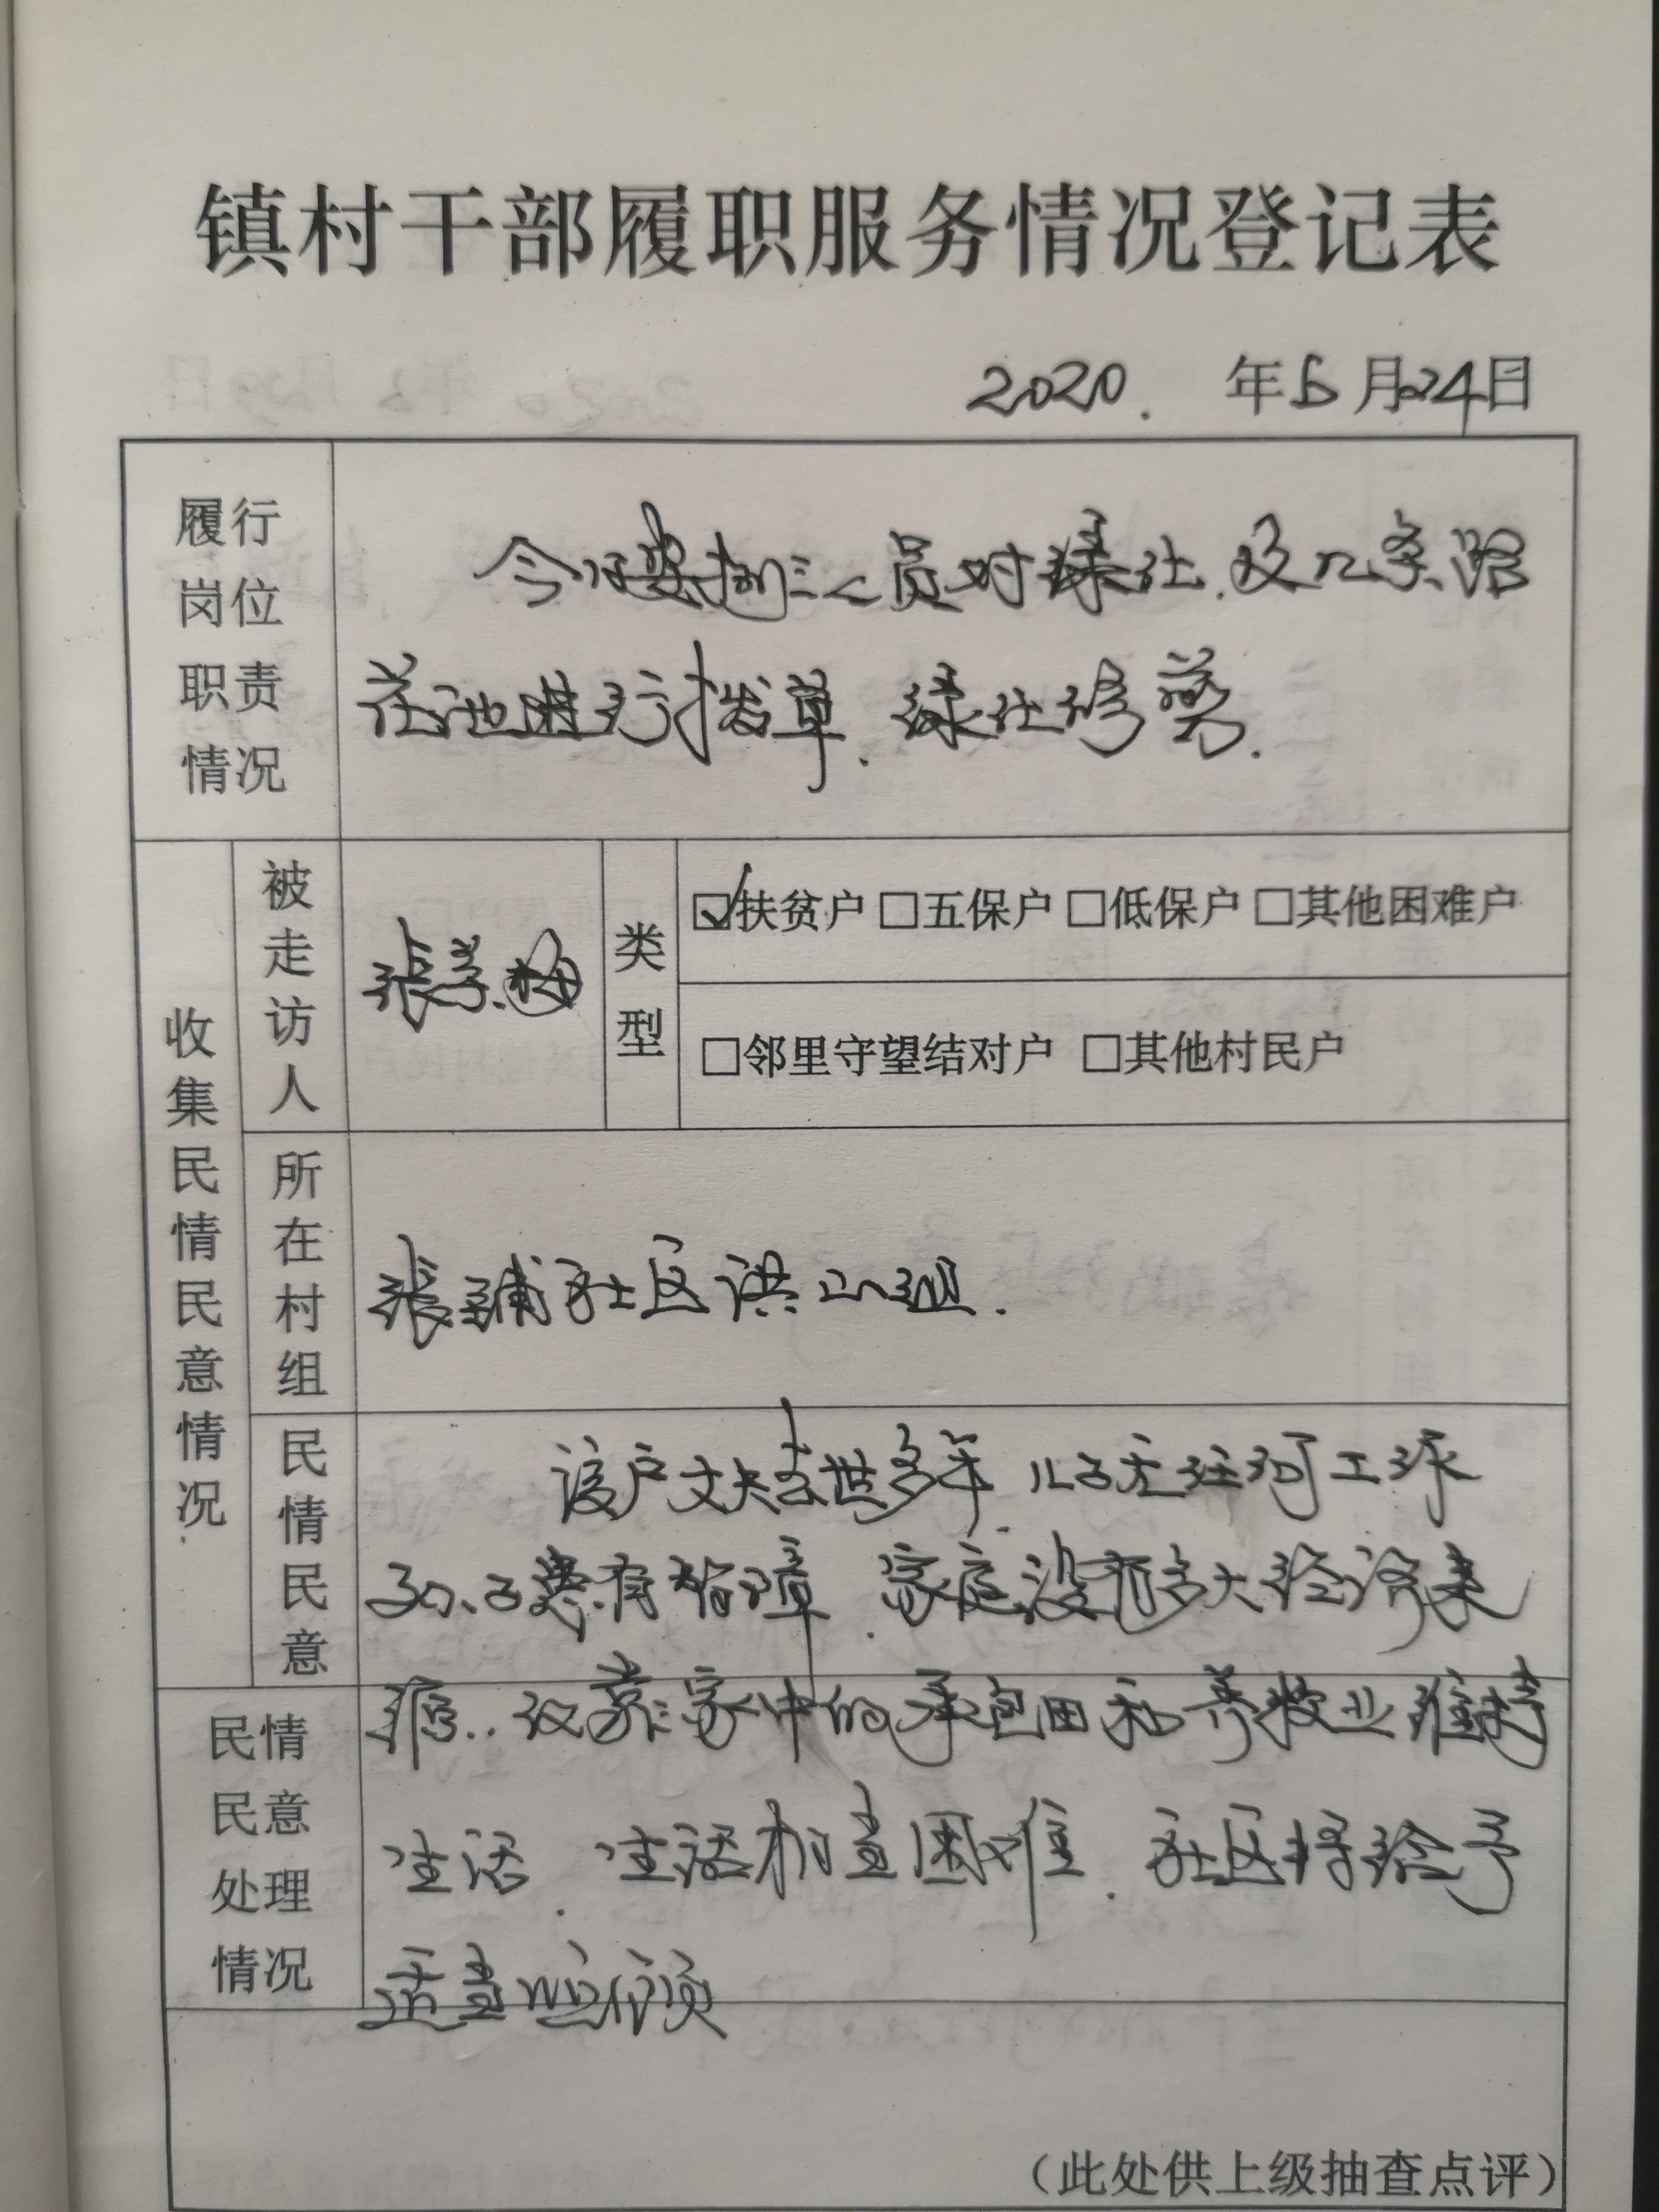 镇村干部履职服务情况登记表
2020. 年6月24日
履行岗位职责情况
今日安排三人员对绿化.及几条路
花池进行拨草.绿化修剪.
收集民情民意情况
被走访人
张孝梅
类型
☑扶贫户 □五保户 □低保户 □其他困难户
□邻里守望结对户 □其他村民户
所在村组
张铺社区洪山组.
民情民意
该户丈夫去世多年.儿子无任何工作
孙子患有智障.家庭没有多大经济来
源..仅靠家中的承包田和养殖业维持
生活.生活相当困难.社区将给予
适当照顾
民情民意处理情况
（此处供上级抽查点评）